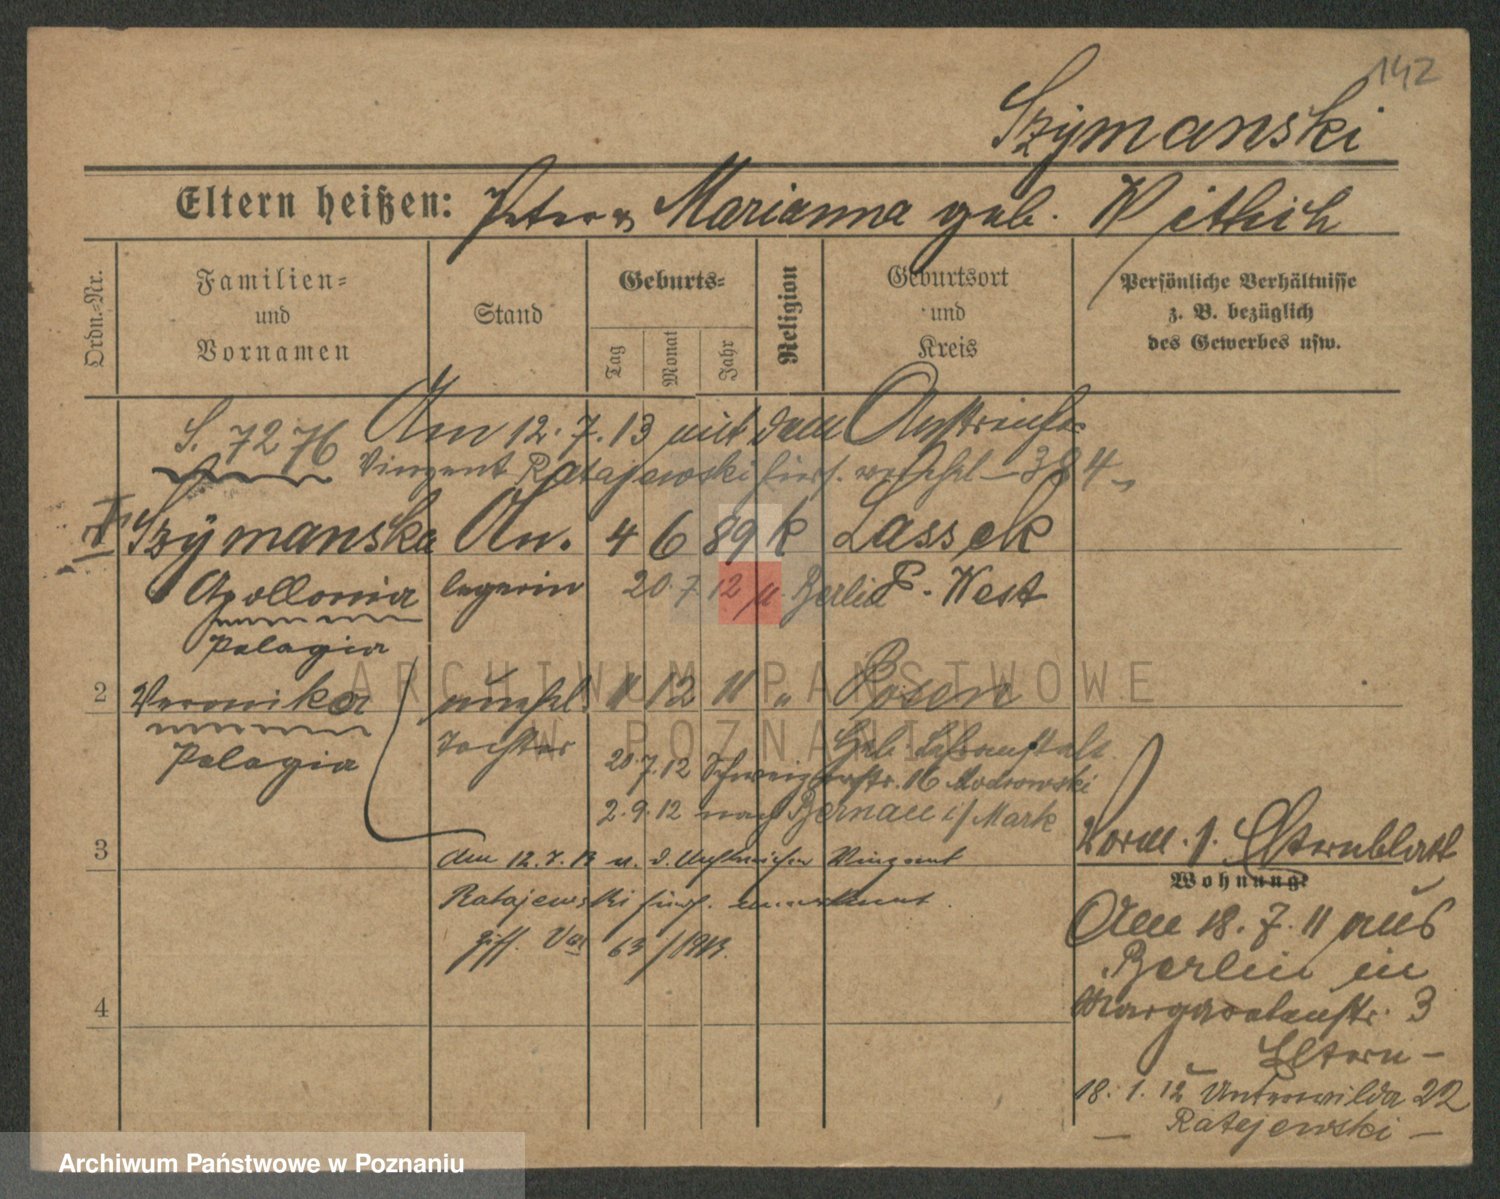 142
Szymanski
Eltern heißen: Peter u Marianna geb. Wittich
Ordn.-Nr.
Familien- und Vornamen
Stand
Geburts-
Tag
Monat
Jahr
Religion
Geburtsort und Kreis
Persönliche Verhältnisse z. B. bezüglich des Gewerbes usw.
S. 7276 Am 12.7.13 mit dem Anstreicher
Vinzent Ratajewski hies. verehel - 384 -
Szymanska An. 4 6 89 k Lassek
Apollonia legerin 20.7.12 u. Berlin P. West
Pelagia
2 Veronika unehel 11 12 11 " Posen
Tochter
Pelagia
20.7.12 16 Modrowski
2.9.12 nach Bernau i/Mark
3
Am 12.7.13 m. d. Anstreicher Vinzent
Ratajewski hies.
63/1913.
4
Vorm. s. Elternblatt
Wohnung:
Am 18.7.11 aus
Berlin in
Margaretenstr. 3
Eltern -
18.1.12 Unterwilda 22
- Ratejewski -
ARCHIWUM PAŃSTWOWE
W POZNANIU
Archiwum Państwowe w Poznaniu